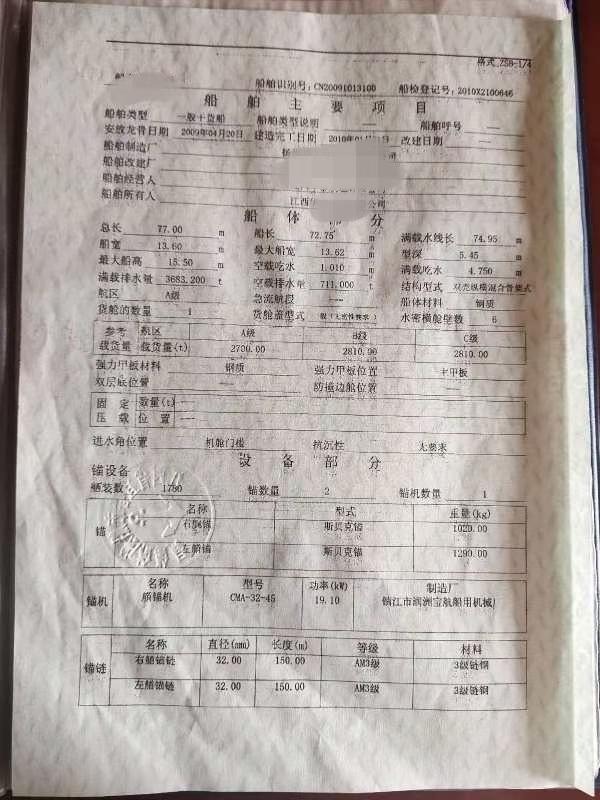 格式 ZS8-1/4
船舶识别号：CN20091013100 船检登记号：2010X2100646
船 舶 主 要 项 目
船舶类型 一般干货船 船舶类型说明 —— 船舶呼号 ——
安放龙骨日期 2009年04月20日 建造完工日期 改建日期 ——
船舶制造厂
船舶改建厂
船舶经营人
船舶所有人 江西 公司
船 体 部 分
总长 77.00 m 船长 72.75 m 满载水线长 74.95 m
船宽 13.60 m 最大船宽 13.62 m 型深 5.45 m
最大船高 15.50 m 空载吃水 1.010 m 满载吃水 4.750 m
满载排水量 3683.200 t 空载排水量 711.000 t 结构型式 双壳纵横混合骨架式
航区 A级 急流航段 —— 船体材料 钢质
货舱的数量 1 货舱盖型式 (无密性要求) 水密横舱壁数 6
参考 航区 A级 B级 C级
载货量 载货量(t) 2700.00 2810.00 2810.00
强力甲板材料 钢质 强力甲板位置 主甲板
双层底位置 —— 防撞边舱位置 ——
固定 数量(t) ——
压载 位置 ——
进水角位置 机舱门槛 抗沉性 无要求
设 备 部 分
锚设备
舾装数 1780 锚数量 2 锚机数量 1
名称 型式 重量(kg)
锚 右艏锚 斯贝克锚 1020.00
左艏锚 斯贝克锚 1290.00
名称 型号 功率(kW) 制造厂
锚机 艏锚机 CMA-32-45 19.10 镇江市润洲宝航船用机械厂
名称 直径(mm) 长度(m) 等级 材料
锚链 右艏锚链 32.00 150.00 AM3级 3级链钢
左艏锚链 32.00 150.00 AM3级 3级链钢